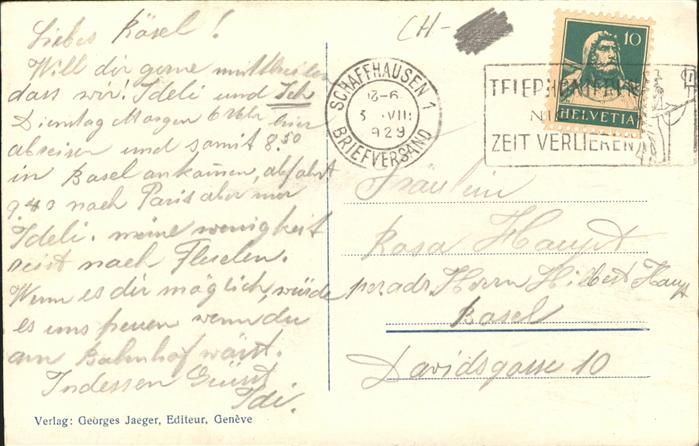 Liebes Rösel!
Will dir gerne mitteilen
dass wir. Ideli und Ich
Dienstag Morgen 6 Uhr hier
abreisen und somit 8.50
in Basel ankommen, abfahrt
9.40 nach Paris aber nur
Ideli. meine wenigkeit
reist nach Fluelen.
Wenn es dir möglich, würde
es uns freuen wenn du
am Bahnhof wärst.
Indessen Grüsst
Idi.
Verlag: Georges Jaeger, Editeur, Genève
CH-
SCHAFFHAUSEN 1
BRIEFVERSAND
VIII
929
10
HELVETIA
ZEIT VERLIEREN
Fräulein
Rosa Haupt
per adr. Herrn Haupt
Basel
Davidsgasse 10